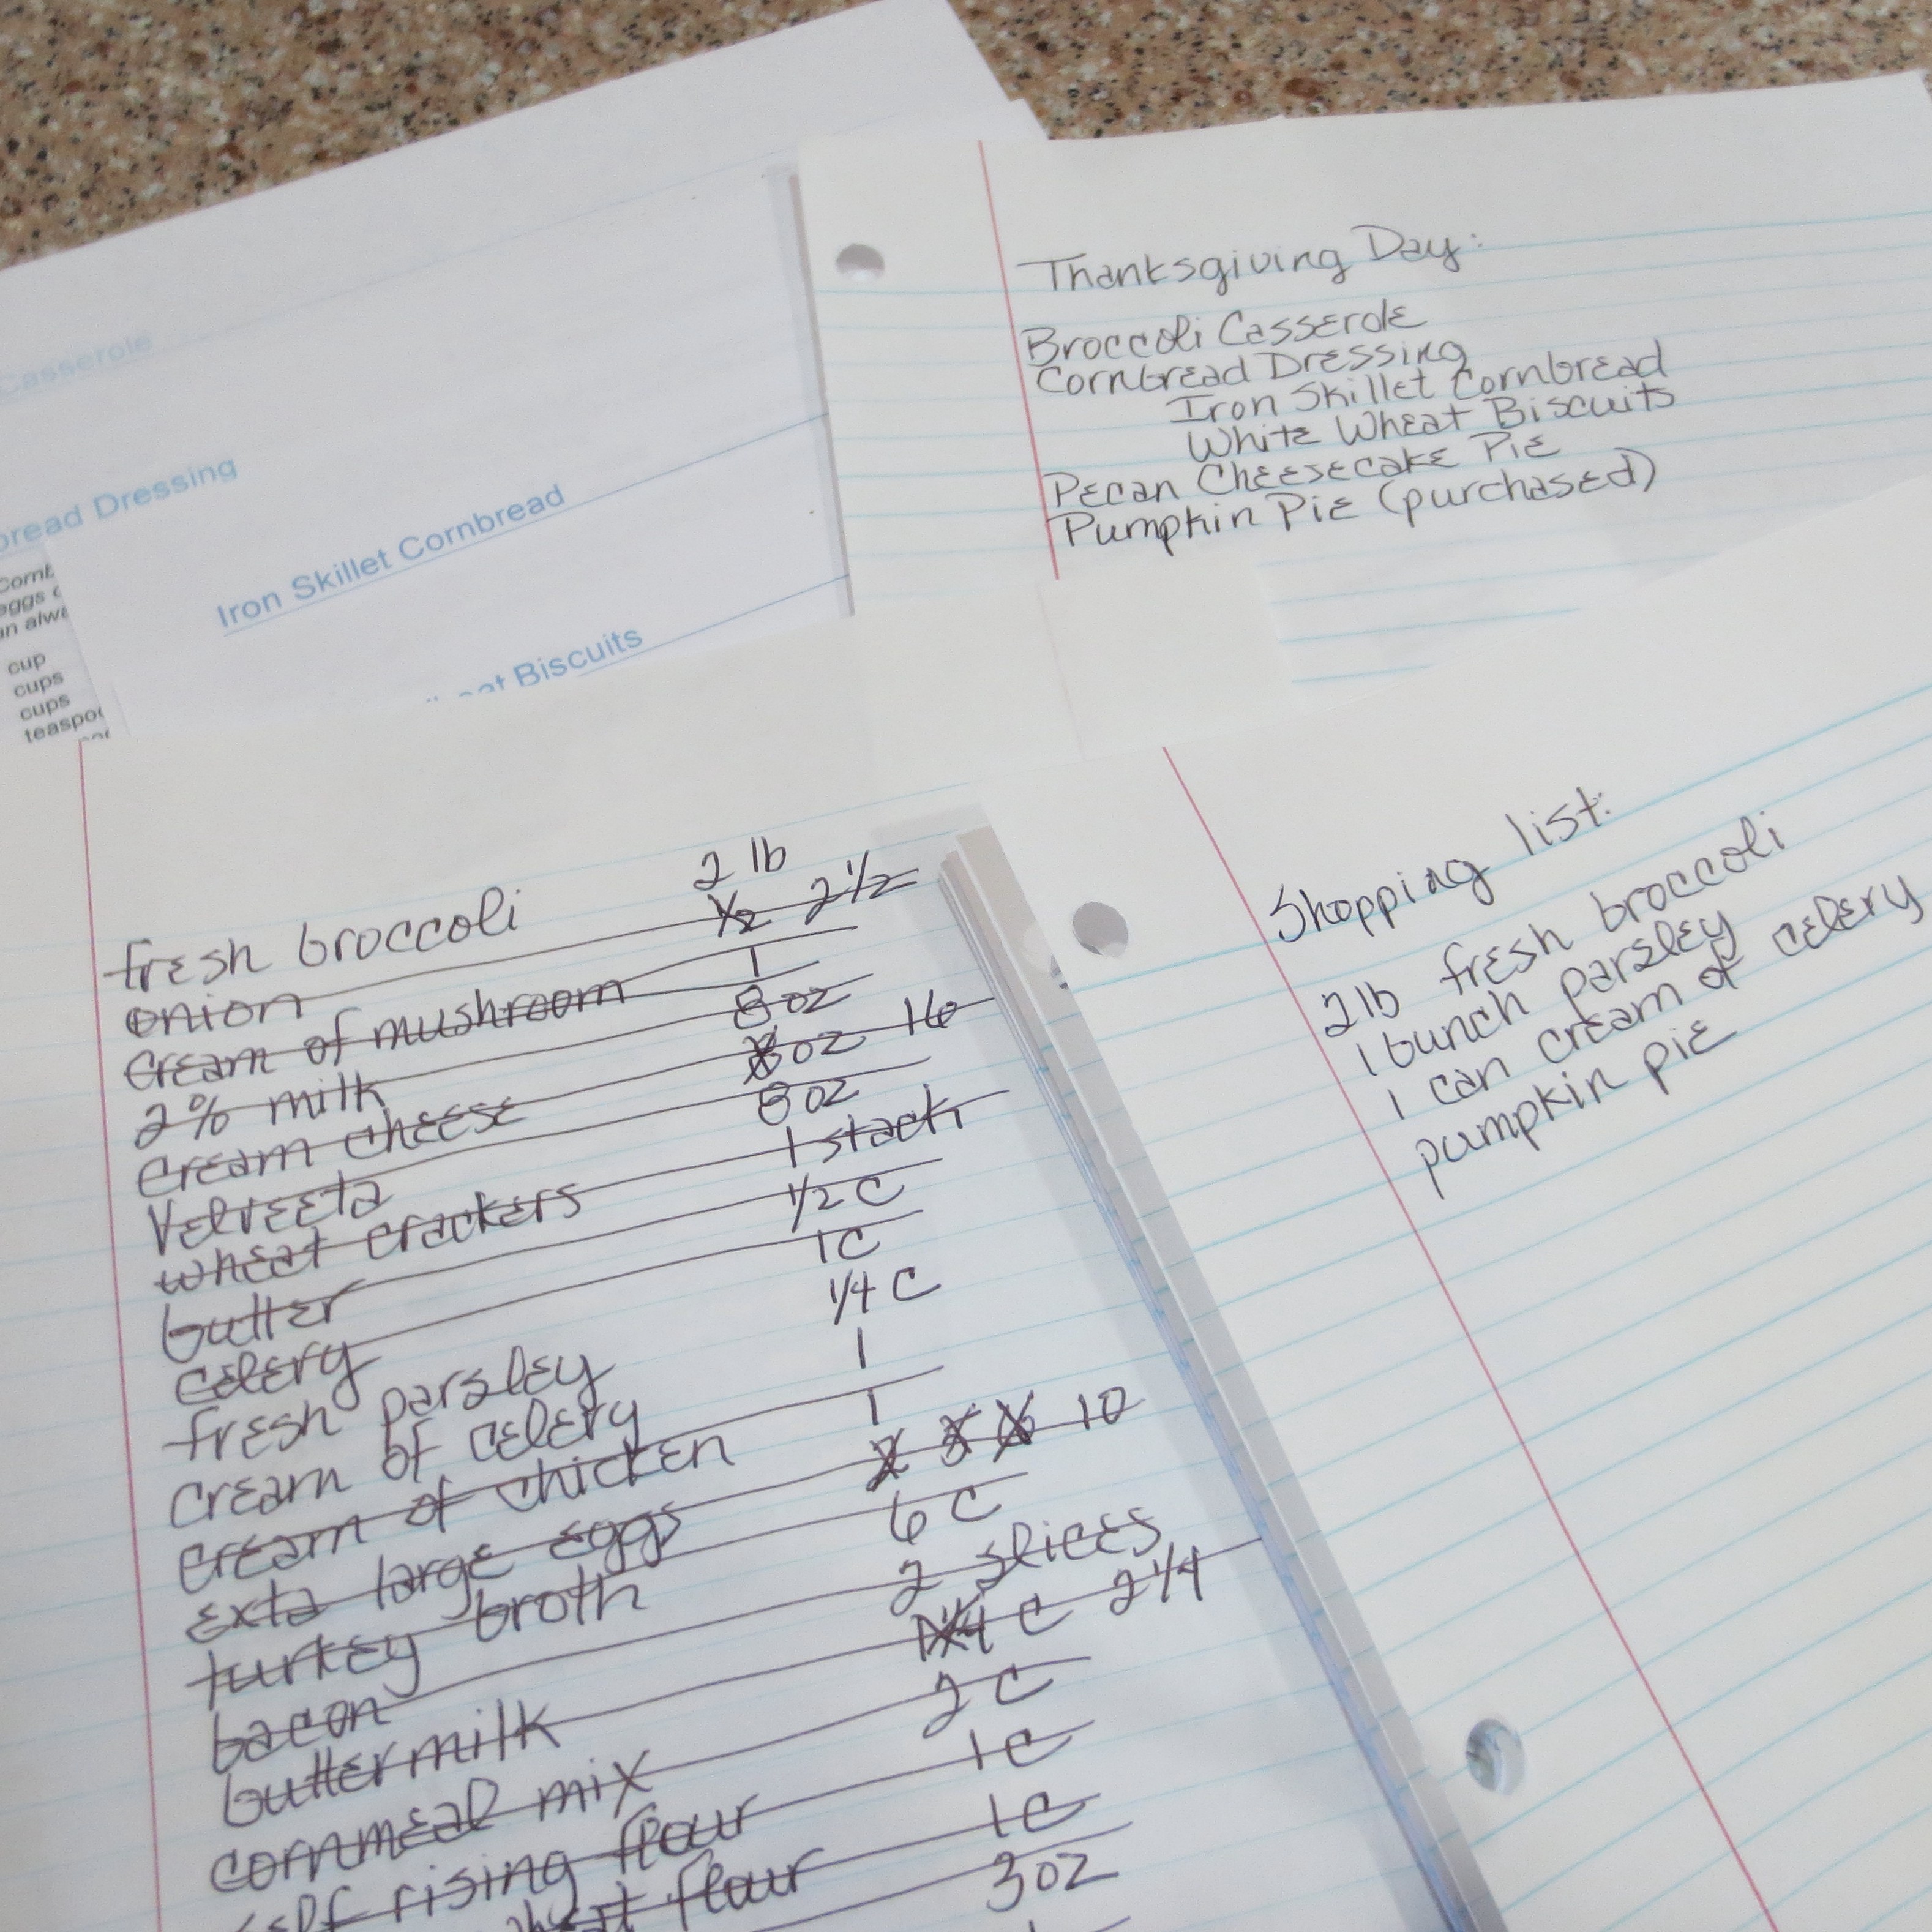 Casserole
bread Dressing
Iron Skillet Cornbread
eat Biscuits
eggs
cup
cups
cups
Thanksgiving Day:
Broccoli Casserole
Cornbread Dressing
Iron Skillet Cornbread
White Wheat Biscuits
Pecan Cheesecake Pie
Pumpkin Pie (purchased)
fresh broccoli 2 lb
onion 1/2 2 1/2
cream of mushroom 1
2% milk 8 oz
cream cheese 8 oz 16
Velveeta 8 oz
wheat crackers 1 stack
butter 1/2 C
celery 1 C
fresh parsley 1/4 C
cream of celery 1
cream of chicken 1
exta large eggs 2 3 6 10
turkey broth 6 C
bacon 2 slices
buttermilk C 2 1/4
cornmeal mix 2 C
self rising flour 1 C
flour 1 C
3 oz
Shopping list:
2 lb fresh broccoli
1 bunch parsley
1 can cream of celery
pumpkin pie